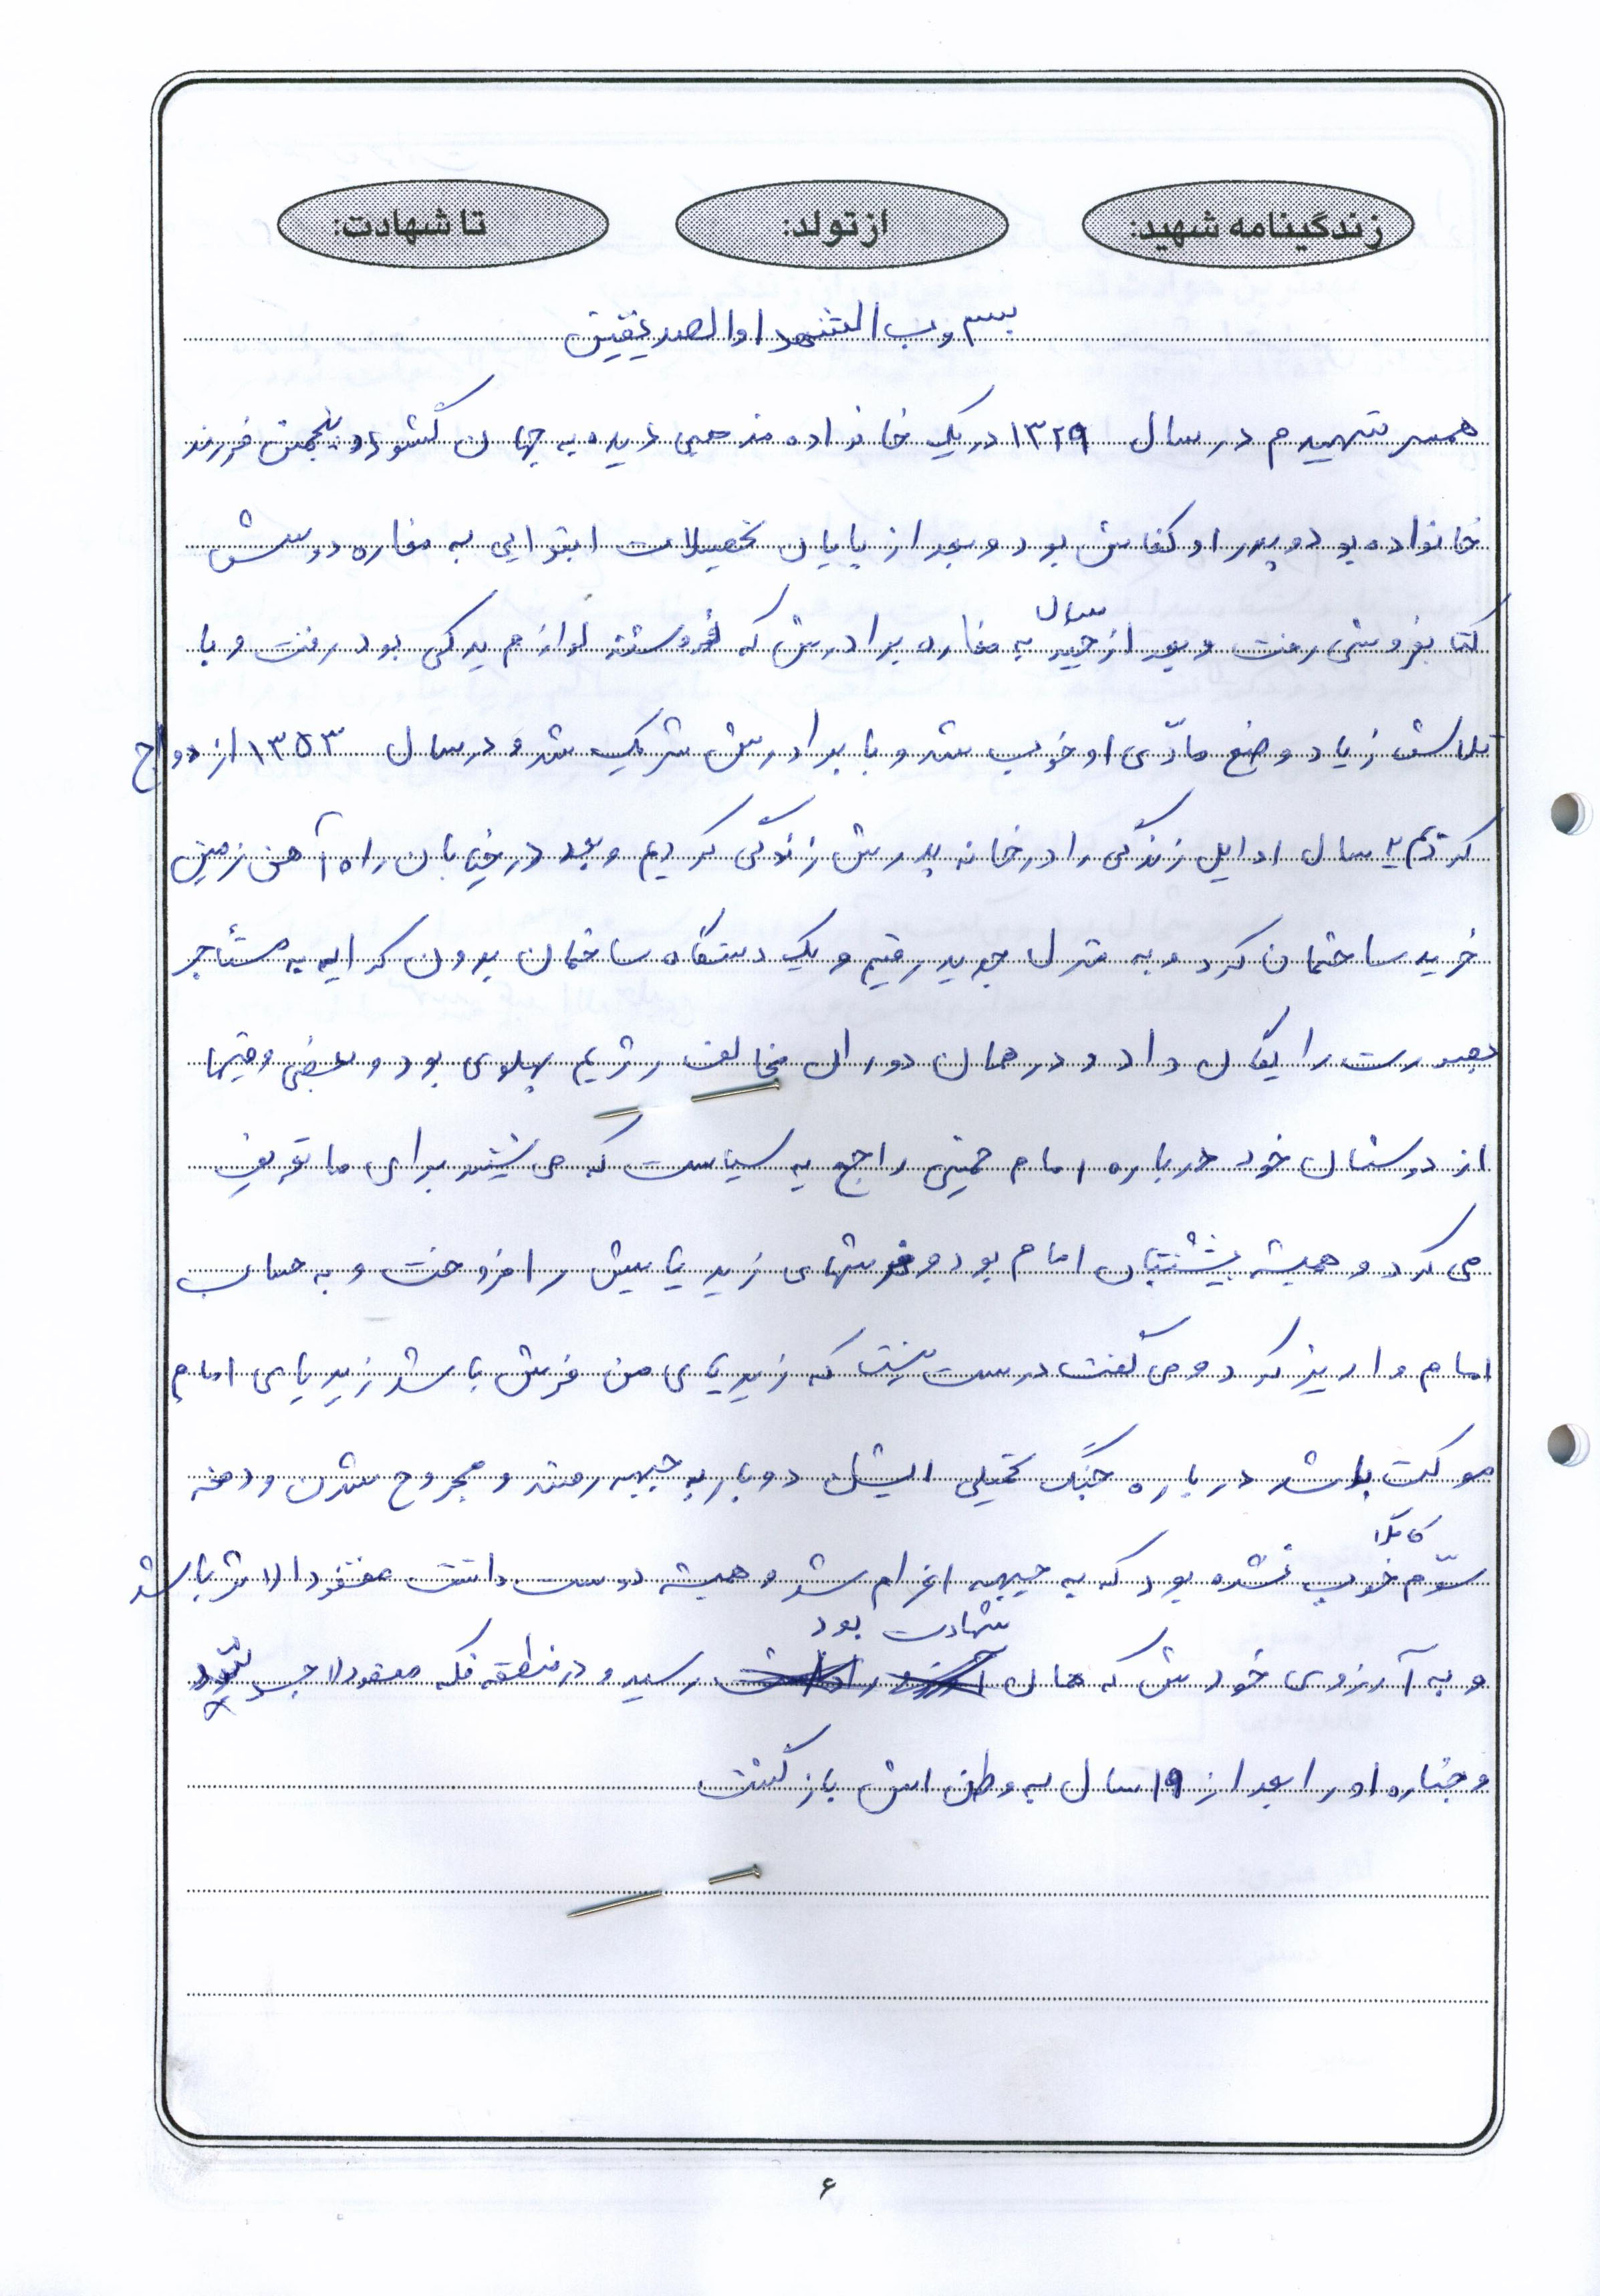 زندگینامه شهید: از تولد: تا شهادت:
بسم رب الشهدا والصدیقین
همسر شهیدم در سال ۱۳۲۹ در یک خانواده مذهبی دیده به جهان گشود و پنجمین فرزند
خانواده بود و پدر او کفاش بود و بعد از پایان تحصیلات ابتدایی به مغازه دوستش
کتابفروشی رفت و بعد از چند سال به مغازه برادرش که فروشنده لوازم یدکی بود رفت و با
تلاش زیاد وضع مادّی او خوب شد و با برادرش شریک شد و در سال ۱۳۵۳ ازدواج
کردیم ۲ سال اوایل زندگی را در خانه پدرش زندگی کردیم و بعد در خیابان راه آهن زمین
خرید ساختمان کرد و به منزل جدید رفتیم و یک دستگاه ساختمان بدون کرایه به مستأجر
بصورت رایگان داد و در همان دوران مخالف رژیم پهلوی بود و بعضی وقتها
از دوستان خود درباره امام خمینی راجع به سیاست که می شنید برای ما تعریف
می کرد و همیشه پشتیبان امام بود و فرشهای زیر پایش را فروخت و به حساب
امام واریز کرد و می گفت درست نیست که زیر پای من فرش باشد زیر پای امام
موکت باشد درباره جنگ تحمیلی ایشان دو بار به جبهه رفتند و مجروح شدن و دفعه
سوّم کاملا خوب نشده بود که به جبهه اعزام شد و همیشه دوست داشت مفقودالاثر باشد
و به آرزوی خودش که همان شهادت بود رسید و در منطقه فکه مفقودالاجسد شد
و جنازه او را بعد از ۱۹ سال به وطن اش بازگشت
۶